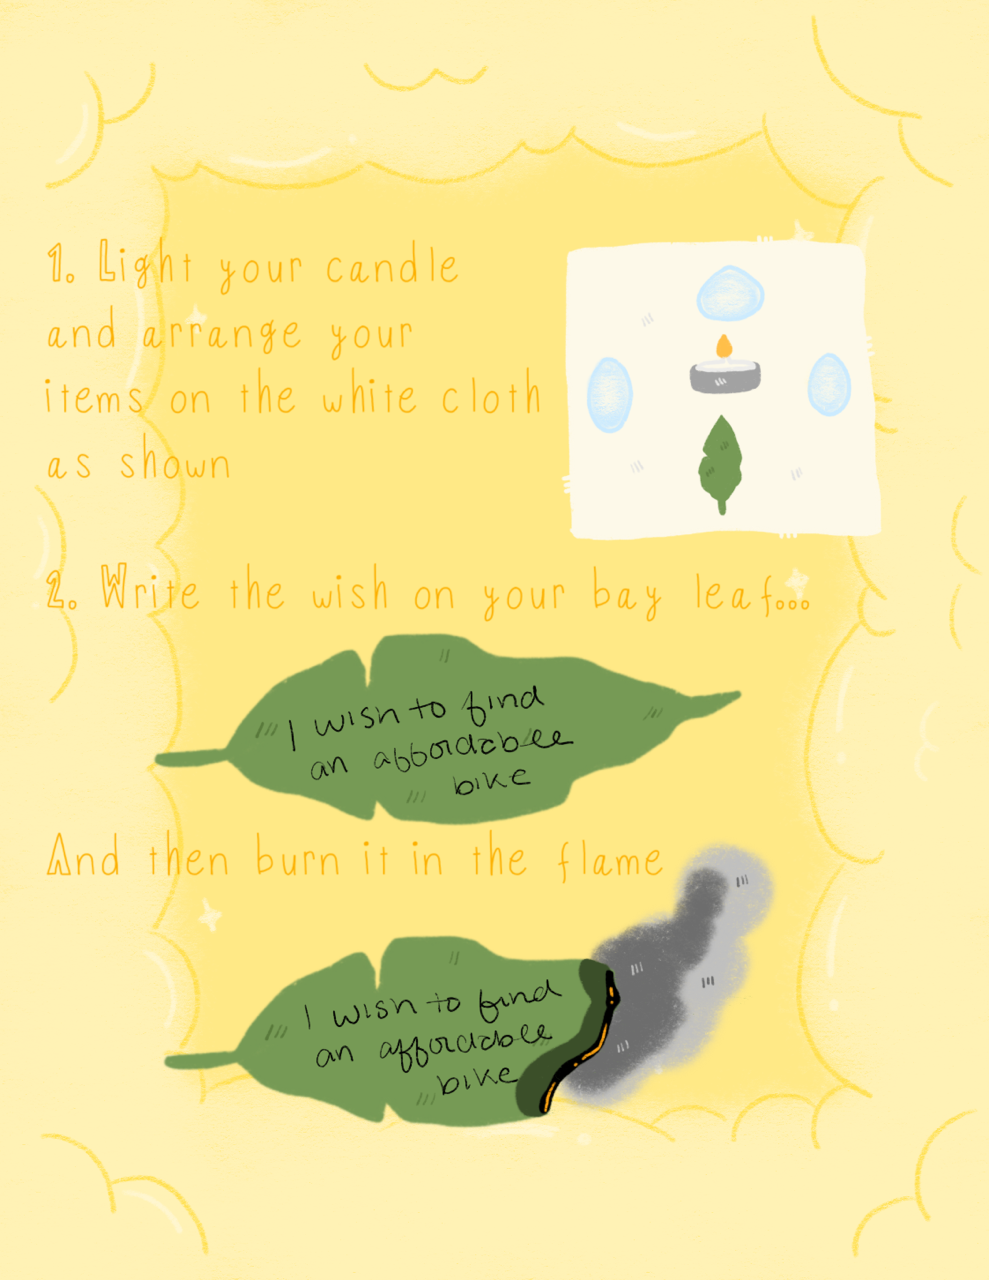 1. Light your candle
and arrange your
items on the white cloth
as shown
2. Write the wish on your bay leaf...
I wish to find
an affordable
bike
And then burn it in the flame
I wish to find
an affordable
bike